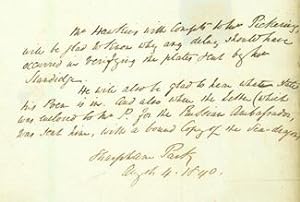 Mr Hawkins with Compts to Mr Pickering,
will be glad to know why any delay should have
occurred in verifying the plates sent by Mr
Standidge.
He will also be glad to hear what state
his Poem is in. And also when the letter (which
was enclosed to Mr P. for the Ambassador,
was sent him, with a bound Copy of the Sea-dragons)
Park
Augt 4. 1840.